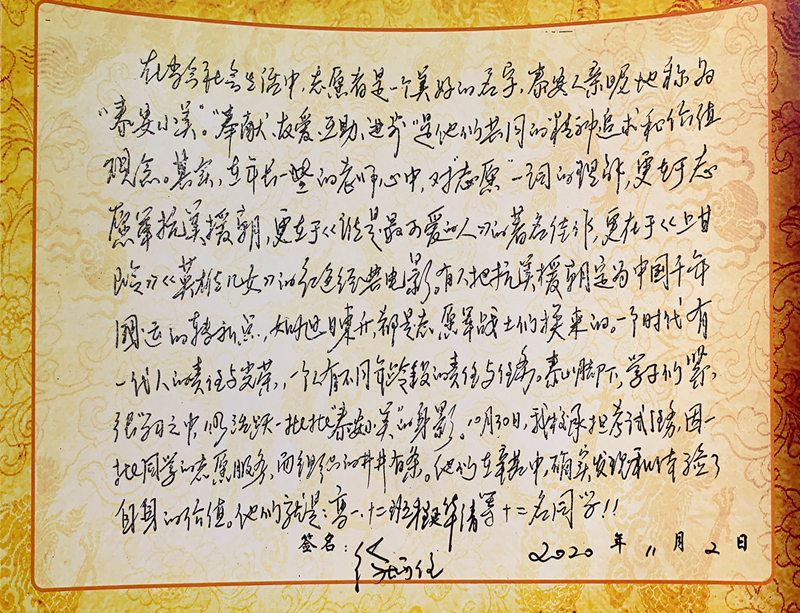 在当今社会生活中，志愿者是一个美好的名字，泰安人亲昵地称为
“泰安小美”。“奉献、友爱、互助、进步”是他们共同的精神追求和价值
观念。其实，在市长一些的老师心中，对“志愿”一词的理解，更在于志
愿军抗美援朝，更在于《谁是最可爱的人》的著名佳作，更在于《上甘
岭》《英雄儿女》的红色经典电影。有人把抗美援朝定为中国千年
国运的转折点，如旭日东升，都是志愿军战士们换来的。一个时代有
一代人的责任与光荣，一个人有不同年龄段的责任与任务。泰山脚下，学子们紧
张学习之中，仍活跃一批批“泰安小美”的身影。10月30日，我校承担考试任务，因一
批同学的志愿服务，而组织的井井有条。他们在辛苦中，确实发现和体验了
自身的价值。他们就是：高一.十二班程华清等十二名同学！！
签名：
2020年11月2日